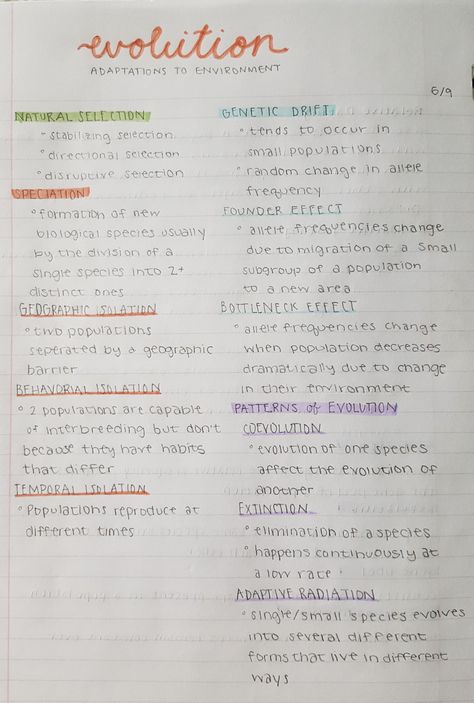 evolution
ADAPTATIONS TO ENVIRONMENT
5/9
NATURAL SELECTION
° stabilizing selection
° directional selection
° disruptive selection
SPECIATION
° formation of new
biological species usually
by the division of a
single species into 2+
distinct ones
GEOGRAPHIC ISOLATION
° two populations
seperated by a geographic
barrier
BEHAVORIAL ISOLATION
° 2 populations are capable
of interbreeding but don't
because they have habits
that differ
TEMPORAL ISOLATION
° Populations reproduce at
different times
GENETIC DRIFT
° tends to occur in
small populations
° random change in allele
frequency
FOUNDER EFFECT
° allele frequencies change
due to migration of a small
subgroup of a population
to a new area
BOTTLENECK EFFECT
° allele frequencies change
when population decreases
dramatically due to change
in their environment
PATTERNS of EVOLUTION
COEVOLUTION
° evolution of one species
affect the evolution of
another
EXTINCTION
° elimination of a species
° happens continuously at
a low rate
ADAPTIVE RADIATION
° single/small species evolves
into several different
forms that live in different
ways